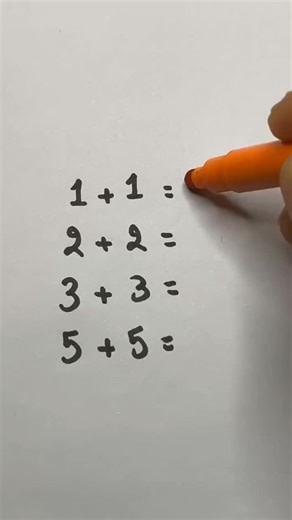 1 + 1 =
2 + 2 =
3 + 3 =
5 + 5 =